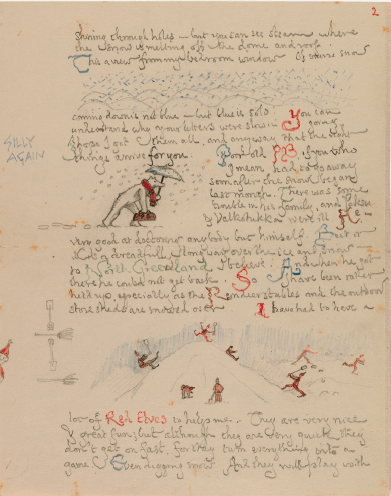 2
shining through holes – but you can see steam where
the snow is melting off the dome and roof.
This a view from my bedroom window. Of course snow
coming down is not blue – but blue is cold. You can
understand why your letters were slow in going.
SILLY
AGAIN
I hope I got them all, and anyway that the right
things arrive for you. Poor old PB, if you who
I mean, had to go away
soon after the snow began
last month. There was some
trouble in his family, and Paksu
& Valkotukka were ill. He
very good at doctoring anybody but himself. But
it a dreadfully long way over the ice and snow –
to North Greenland I believe. And when he got
there he could not get back. So I have been rather
held up, especially as the Reindeer stables and the outdoor
store sheds are snowed over.
I have had to have a
lot of Red Elves to help me. They are very nice
& great fun; but although they are very quick they
don't get on fast. for they turn everything into a
game. Even digging snow. And they will play with